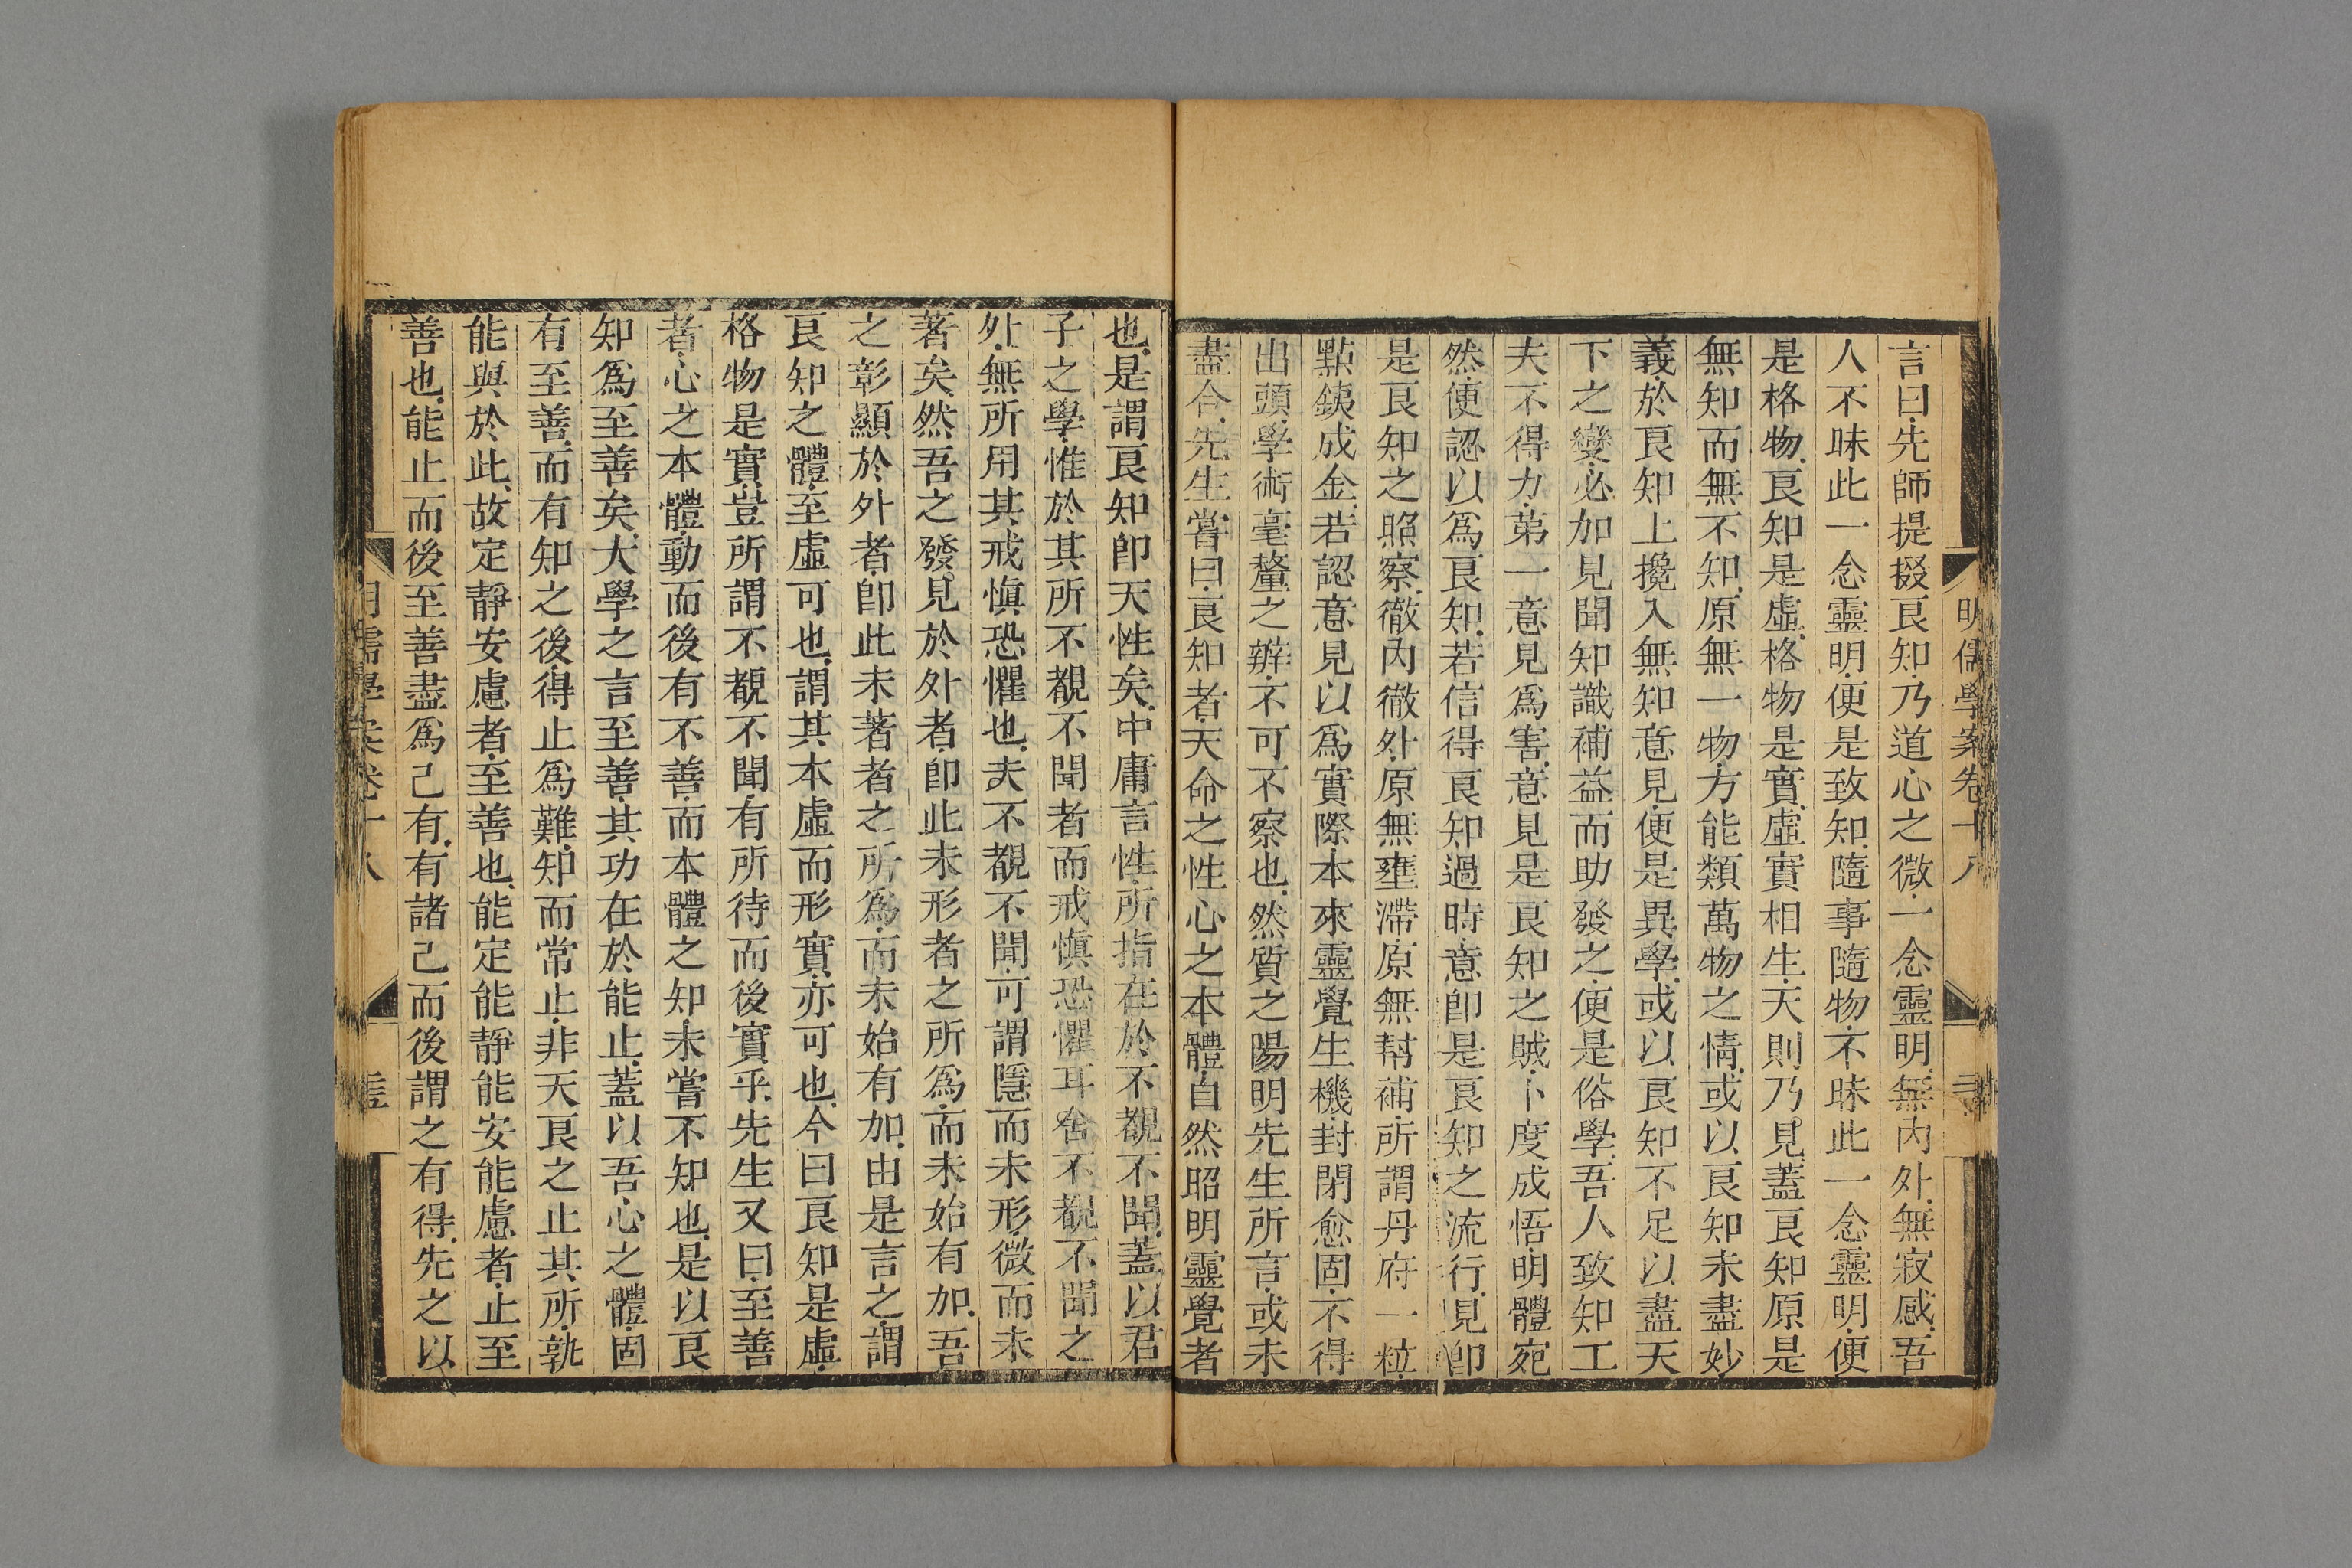 明儒學案卷十八
言曰先師提掇良知乃道心之微一念靈明無內外無寂感吾
人不昧此一念靈明便是致知隨事隨物不昧此一念靈明便
是格物良知是虛格物是實虛實相生天則乃見蓋良知原是
無知而無不知原無一物方能類萬物之情或以良知未盡妙
義於良知上攙入無知意見便是異學或以良知不足以盡天
下之變必加見聞知識補益而助發之便是俗學吾人致知工
夫不得力第一意見為害意見是良知之賊卜度成悟明體宛
然便認以為良知若信得良知過時意卽是良知之流行見卽
是良知之照察徹內徹外原無壅滯原無幇補所謂丹府一粒
點鐵成金若認意見以為實際本來靈覺生機封閉愈固不得
出頭學術毫釐之辨不可不察也然質之陽明先生所言或未
盡合先生嘗曰良知者天命之性心之本體自然昭明靈覺者
也是謂良知卽天性矣中庸言性所指在於不覩不聞蓋以君
子之學惟於其所不覩不聞者而戒慎恐懼耳舍不覩不聞之
外無所用其戒慎恐懼也夫不覩不聞可謂隱而未形微而未
著矣然吾之發見於外者卽此未形者之所為而未始有加吾
之彰顯於外者卽此未著者之所為而未始有加由是言之謂
良知之體至虛可也謂其本虛而形實亦可也今曰良知是虛
格物是實豈所謂不覩不聞有所待而後實乎先生又曰至善
者心之本體動而後有不善而本體之知未嘗不知也是以良
知為至善矣大學之言至善其功在於能止蓋以吾心之體固
有至善而有知之後得止為難知而常止非天良之止其所孰
能與於此故定靜安慮者至善也能定能靜能安能慮者止至
善也能止而後至善盡為己有有諸己而後謂之有得先之以
明儒學案卷十八